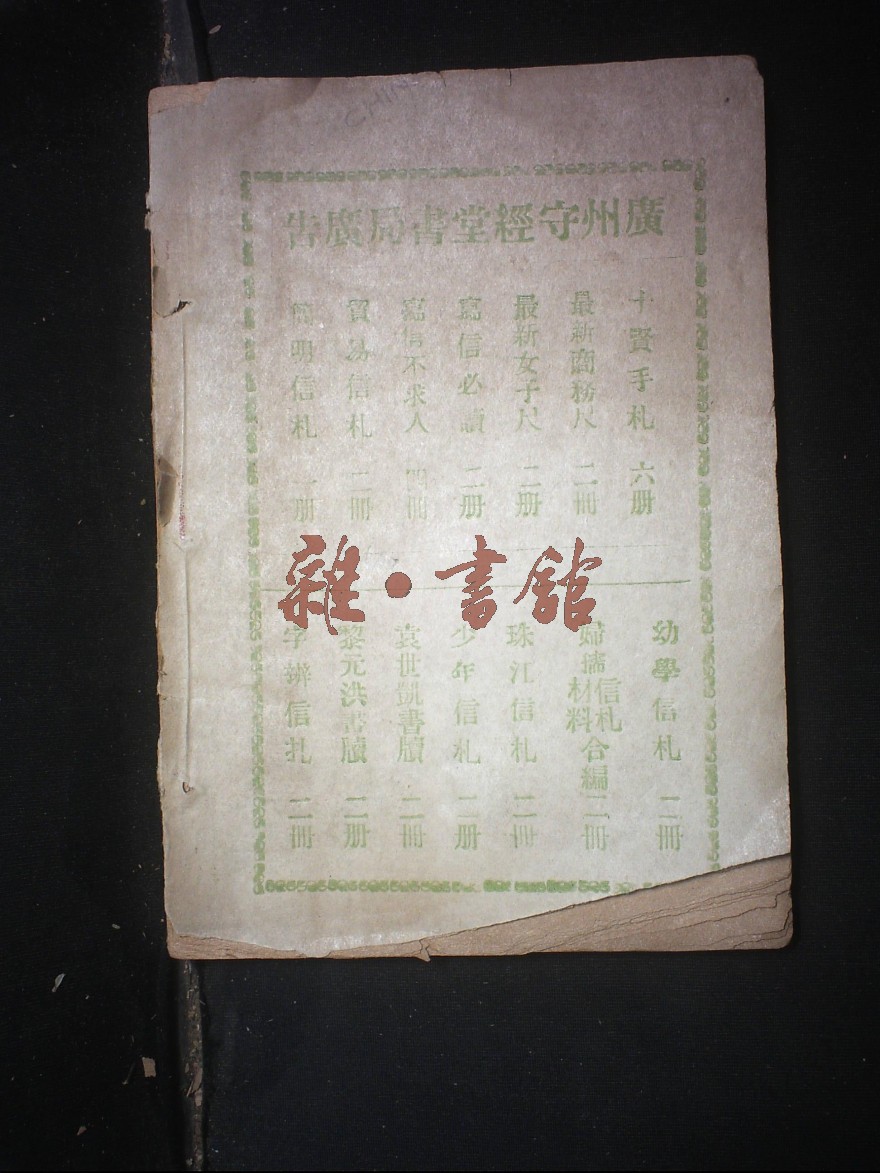 廣州守經堂書局廣告
十賢手札 六册
最新商務尺 二冊
最新女子尺 二册
寫信必讀 二册
寫信不求人 四冊
貿易信札 二冊
簡明信札 册
幼學信札 二冊
婦孺信札材料合編 二冊
珠江信札 二冊
少年信札 二册
袁世凱書牘 二冊
黎元洪書牘 二册
字辨信札 二冊
雜·書館